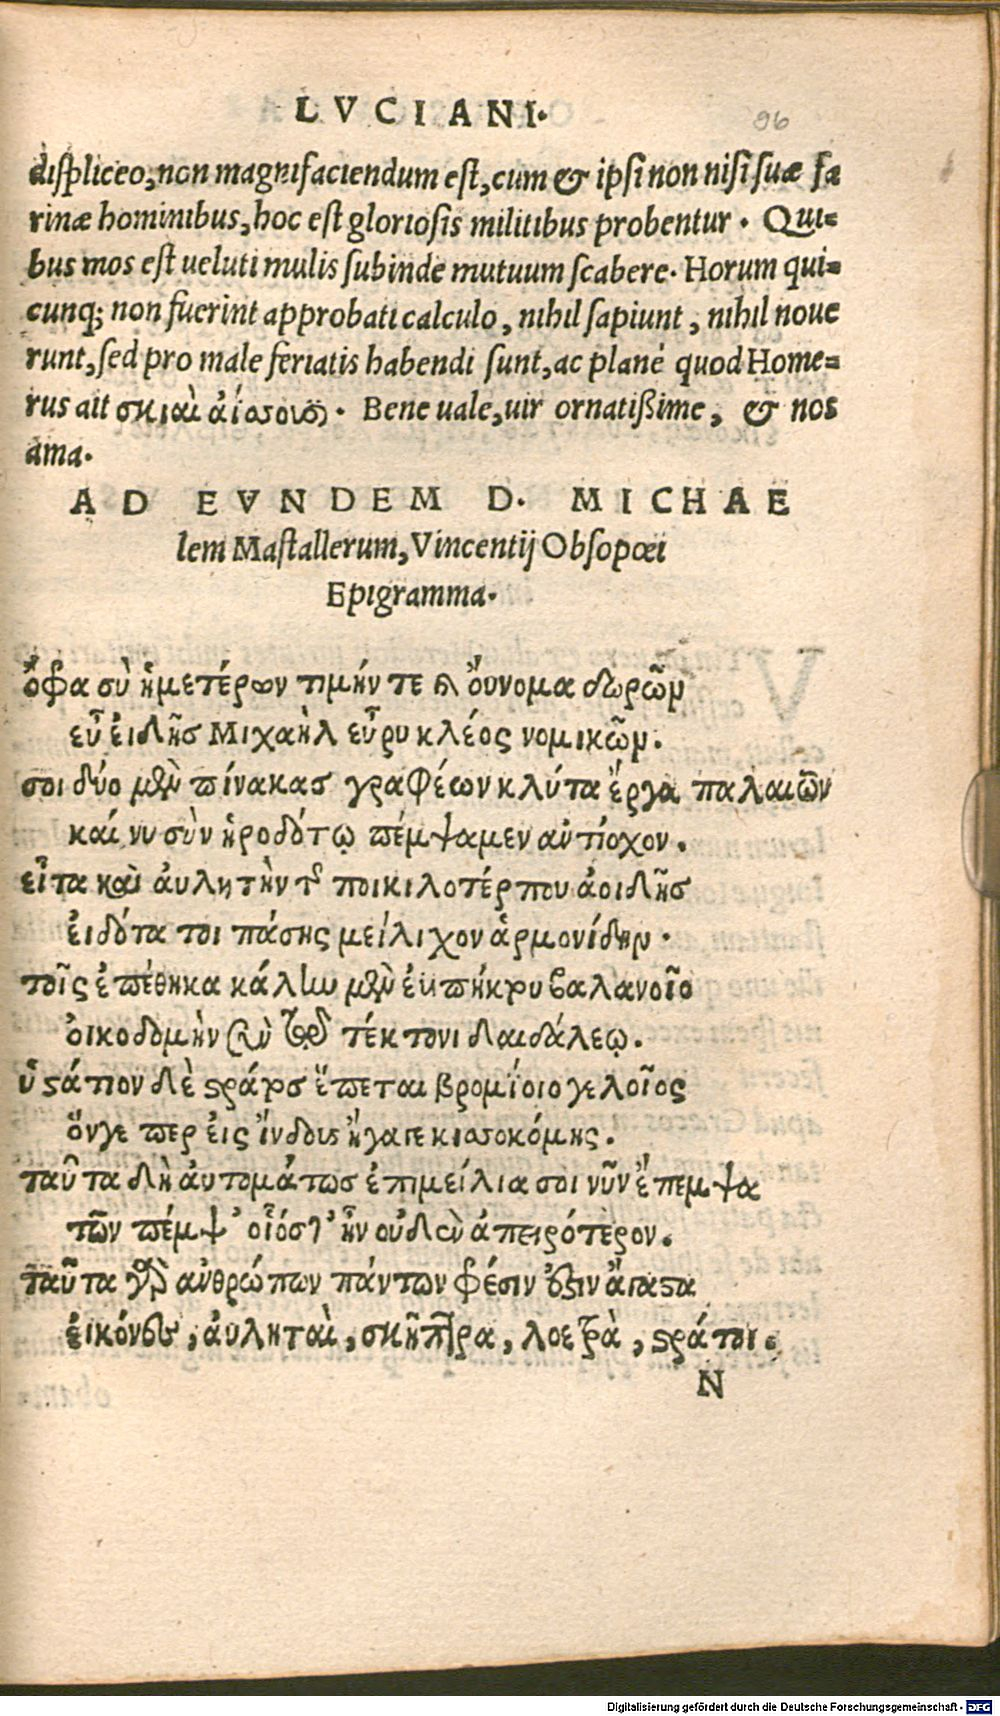 LVCIANI.
96
displiceo, non magnifaciendum est, cum & ipsi non nisi suæ fa
rinæ hominibus, hoc est gloriosis militibus probentur. Qui=
bus mos est ueluti mulis subinde mutuum scabere. Horum qui=
cunq; non fuerint approbati calculo, nihil sapiunt, nihil noue
runt, sed pro male feriatis habendi sunt, ac planè quod Home=
rus ait σκιαὶ ἀΐσσουσι. Bene uale, uir ornatißime, & nos
ama.
AD EVNDEM D. MICHAE
lem Mastallerum, Vincentij Obsopœi
Epigramma.
ὄφρα σὺ ἡμετέρων τιμήν τε καὶ ὄυνομα δωρῶν
εὖ ἐιδῇς Μιχαὴλ εὖρυ κλέος νομικῶν.
σοι δύο μὲν πίνακας γραφέων κλύτα ἔργα παλαιῶν
καί νυ σὺν ἡροδότῳ πέμψαμεν ἀντίοχον.
εἶτα καὶ ἀυλητὴν τῆς ποικιλοτέρπου ἀοιδῆς
ἐιδότα τοι πάσης μείλιχον ἁρμονίδην.
τοῖς ἐπέθηκα κάλην μὲν βαλανοῖο
ὀικοδομὴν σὺν τέκτονι δαιδάλεῳ.
ὑστάτιον δὲ στράτος ἕπεται βρομίοιο γελοῖος
ὅνγε περ ἐις ἴνδους ἤγαγε κισσοκόμης.
ταῦτα δὴ ἀυτομάτως ἐπιμείλια σοι νῦν ἔπεμψα
τῶν πέμψ' οἷόστ' ἦν οὐδὲν ἀπειρότερον.
ταῦτα γὰρ ἀνθρώπων πάντων φέσιν ἄγαστα
ἐικόνες, ἀυληταὶ, σκῆπτρα, λοετρὰ, στράτοι.
N
Digitalisierung gefördert durch die Deutsche Forschungsgemeinschaft - DFG